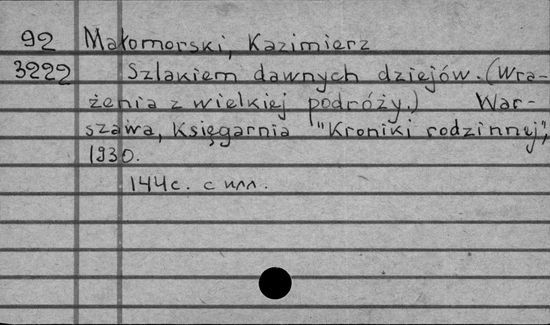 92 Małomorski, Kazimierz
3222 Szlakiem dawnych dziejów. (Wra-
żenia z wielkiej podróży.) War-
szawa, Księgarnia "Kroniki rodzinnej",
1930.
144с. с илл.